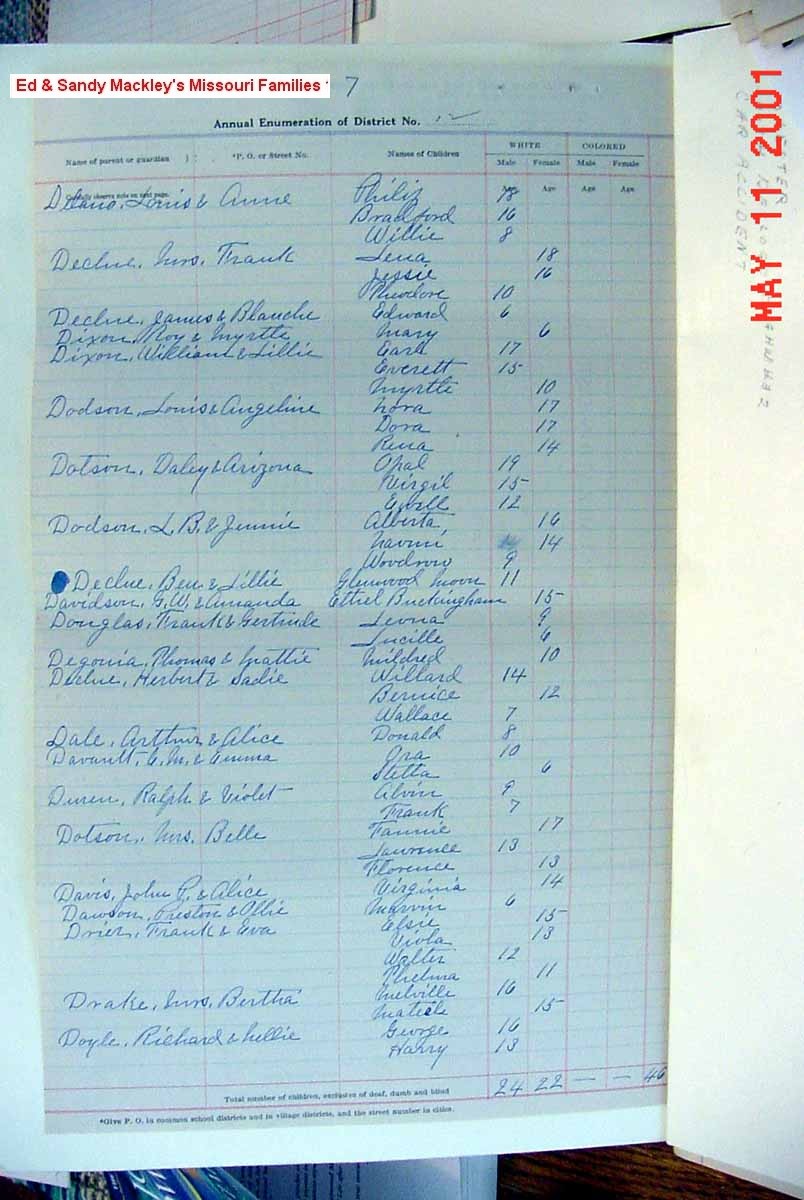 Ed & Sandy Mackley's Missouri Families
7
Annual Enumeration of District No. 12
WHITE COLORED
Name of parent or guardian *P. O. or Street No. Names of Children Male Female Male Female
Carefully observe note on next page. Age Age Age Age
Delano, Louis & Anne Philip 18
Bradford 16
Willie 8
Declue, Mrs. Frank Lena 18
Jessie 16
Theodore 10
Declue, James & Blanche Edward 6
Dixon, Roy & Myrtle Mary 6
Dixon, William & Lillie Earl 17
Everett 15
Myrtle 10
Dodson, Louis & Angeline Nora 17
Dora 17
Rena 14
Dotson, Daley & Arizona Opal 19
Virgil 15
Ewell 12
Dodson, L. B. & Jennie Alberta 16
Naomi 14
Woodrow 9
Declue, Ben & Lillie Glenwood Moon 11
Davidson, G. W. & Amanda Ethel Buckingham 15
Douglas, Frank & Gertrude Leona 9
Lucille 6
Degonia, Thomas & Mattie Mildred 10
Declue, Herbert & Sadie Willard 14
Bernice 12
Wallace 7
Dale, Arthur & Alice Donald 8
Davault, E. M. & Emma Ora 10
Stella 6
Duren, Ralph & Violet Alvin 9
Frank 7
Dotson, Mrs. Belle Fannie 17
Lawrence 13
Florence 13
Davis, John G. & Alice Virginia 14
Dawson, Preston & Ollie Marvin 6
Drier, Frank & Eva Elsie 15
Viola 13
Walter 12
Thelma 11
Drake, Mrs. Bertha Melville 16
15
Doyle, Richard & Nellie George 16
Harry 13
24 22 — — 46
Total number of children, exclusive of deaf, dumb and blind
*Give P. O. in common school districts and in village districts, and the street number in cities.
MAY 11 2001
CAR ACCIDENT